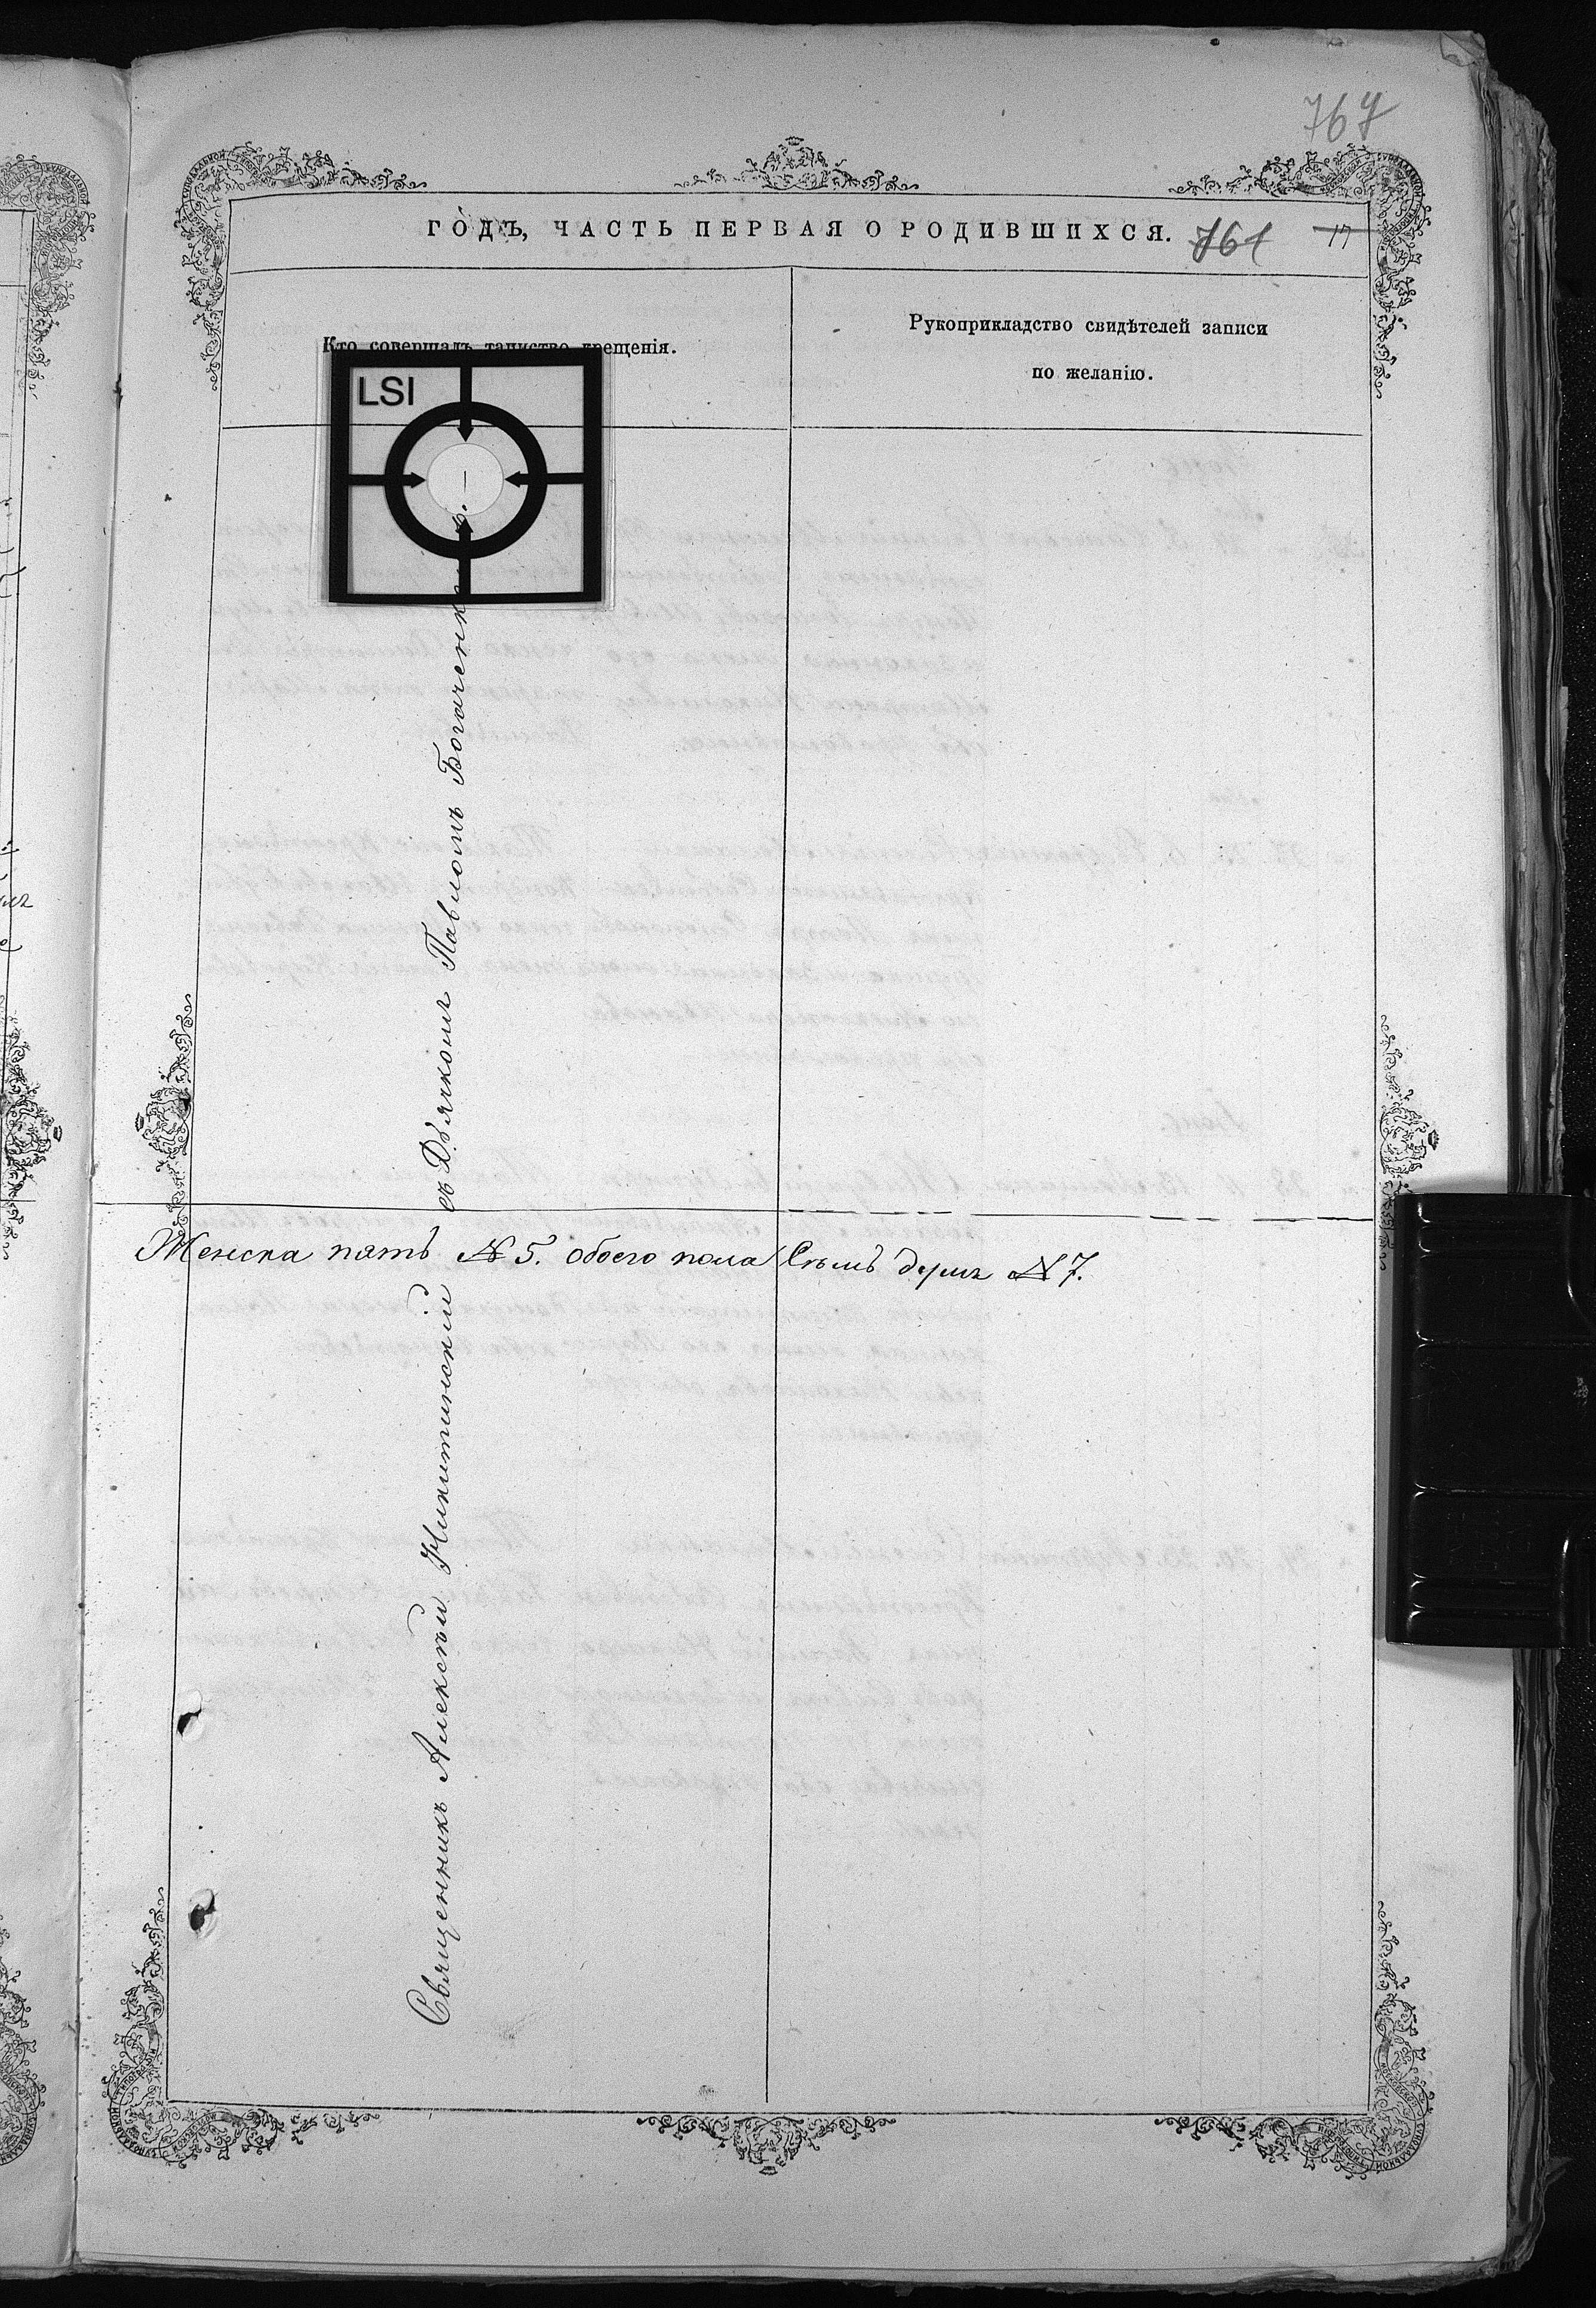 767
ГОДЪ, ЧАСТЬ ПЕРВАЯ О РОДИВШИХСЯ. 761 17
Кто совершалъ таинство крещенія.
Рукоприкладство свидѣтелей записи
по желанію.
LSI
Священникъ Алексѣй Никитинскій съ Дьячкомъ Павломъ Богаченко
Женска пять № 5. обоего пола Семь душъ № 7.